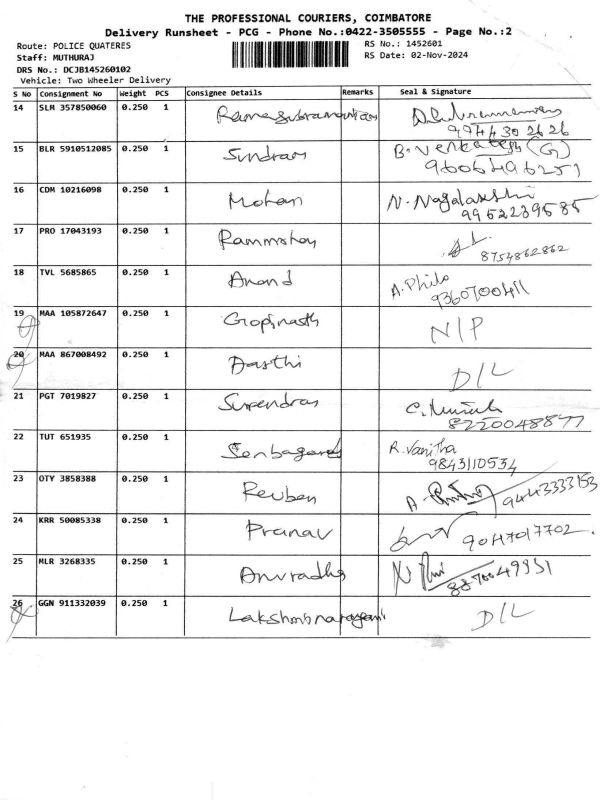 THE PROFESSIONAL COURIERS, COIMBATORE
Delivery Runsheet - PCG - Phone No.:0422-3505555 - Page No.:2
Route: POLICE QUATERES
RS No.: 1452601
Staff: MUTHURAJ
RS Date: 02-Nov-2024
DRS No.: DCJB145260102
Vehicle: Two Wheeler Delivery
S No Consignment No Weight PCS Consignee Details Remarks Seal & Signature
14 SLM 357850060 0.250 1 Ramasubramanian
9944302626
15 BLR 5910512085 0.250 1 Sundram B. Venkatesh (G)
96006496251
16 CDM 10216098 0.250 1 Mohan N. Nagalakshmi
9952239585
17 PRO 17043193 0.250 1 Rammohan
8754862862
18 TVL 5685865 0.250 1 Anand A. Philo
9360700411
19 MAA 105872647 0.250 1 Gopinath N/P
20 MAA 867008492 0.250 1 Dasthi D/L
21 PGT 7019827 0.250 1 Surendran
8220048877
22 TUT 651935 0.250 1 Senbagam R. Vanitha
9843110534
23 OTY 3858388 0.250 1 Reuben 9443333153
24 KRR 50085338 0.250 1 Pranav 9047017702
25 MLR 3268335 0.250 1 Anuradha
8870049951
26 GGN 911332039 0.250 1 Lakshminarayani D/L